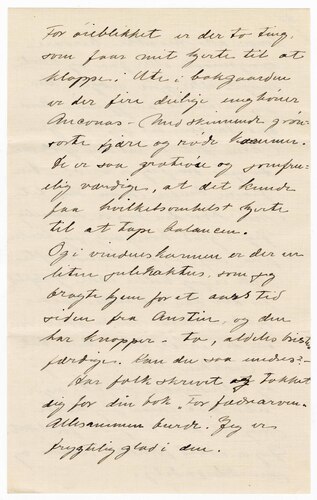 For öieblikket er der to ting,
som faar mit hjerte til at
klappe. Ute i bakgaarden
er der fire deilige unghöner
Anconas - Med skinnende grön-
sorte fjære og röde kammer.
De er saa gratiöse og jomfru-
elig værdige, at det kunde
faa hvilketsomhelst hjerte
til at tape balancen.
Og i vindueskarmen er der en
liten julekaktus, som jeg
bragte hjem for et aars tid
siden fra Austin, og den
har knopper - to, aldeles
færdige. Kan du saa undres?-
Har folk skrevet og takket
dig for din bok "For fædrearven
Allesammen burde. Jeg er
frygtelig glad i den.